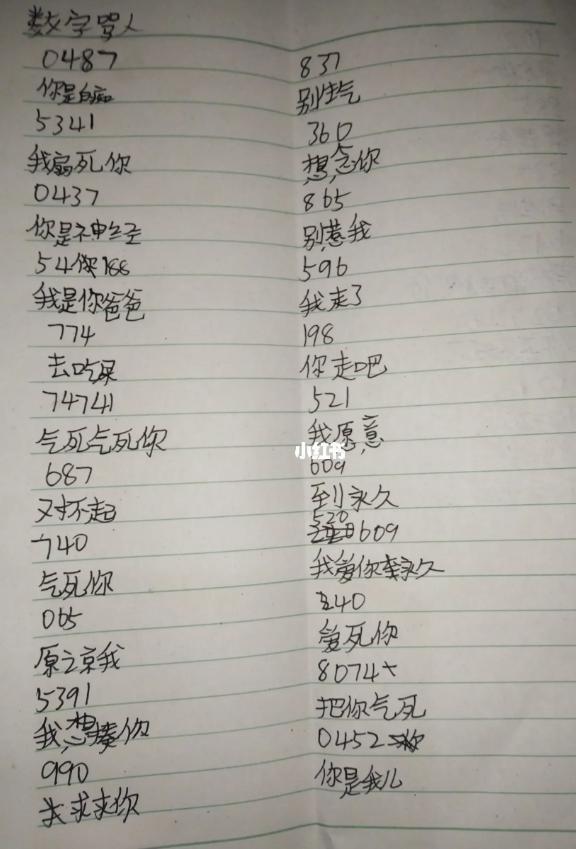 数字骂人
0487
你是白痴
5341
我扇死你
0437
你是神经
54你188
我是你爸爸
774
去吃屎
74741
气死气死你
687
对不起
740
气死你
065
原谅我
5391
我想揍你
990
求求你
837
别生气
360
想念你
865
别惹我
596
我走了
198
你走吧
521
我愿意
小红书
609
到永久
520
609
我爱你到永久
240
爱死你
8074
把你气死
0452
你是我儿